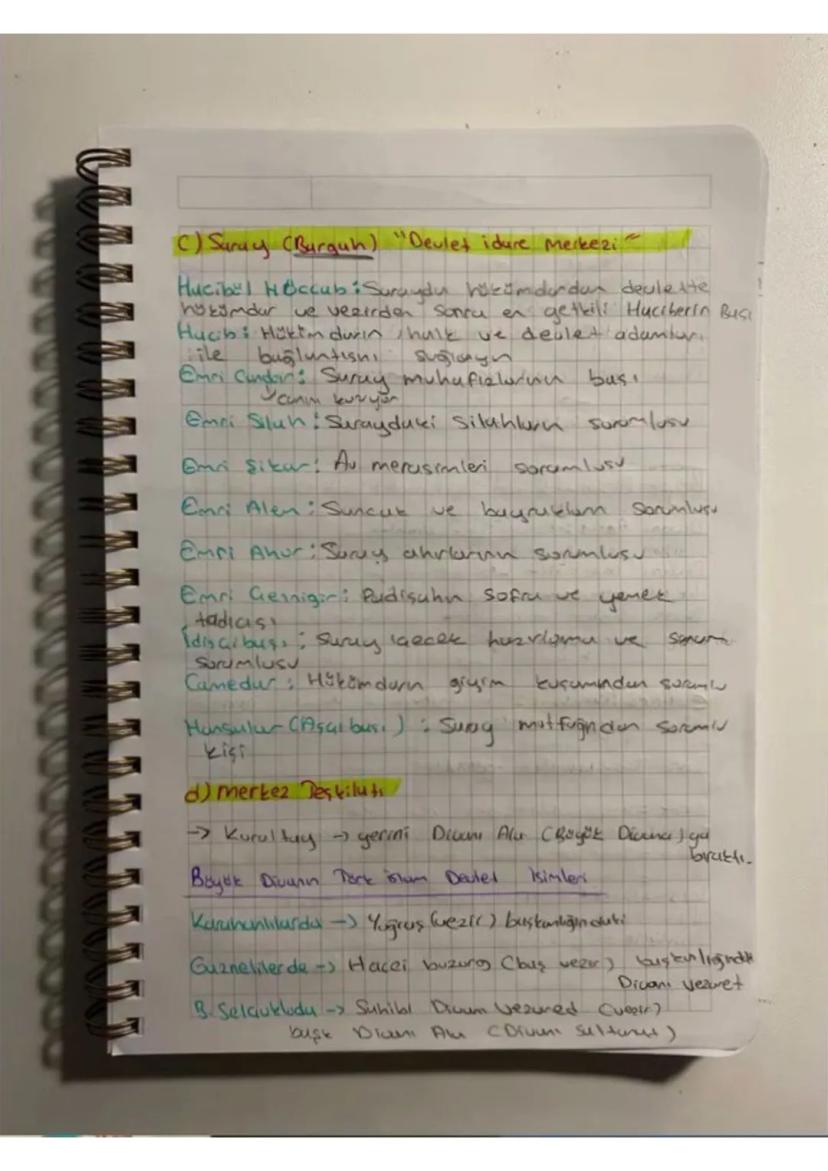 c) Saray (Bargah) "Devlet idare merkezi"
Hacibül Hüccab : Sarayda hükümdardan devlette
hükümdar ve vezirden sonra en yetkili Haciblerin Başı
Hacib : Hükümdarın halk ve devlet adamları
ile bağlantısını sağlayan
Emri Candar : Saray muhafızlarının başı
canını koruyan
Emri Silah : Saraydaki silahların sorumlusu
Emri Şikar : Av merasimleri sorumlusu
Emri Alem : Sancak ve bayrakların sorumlusu
Emri Ahur : Saray ahırlarının sorumlusu
Emri Çeşnigir : Padişahın sofra ve yemek
tadıcısı
İdişçibaşı : Saray içecek hazırlama ve sunum
sorumlusu
Camedar : Hükümdarın giyim kuşamından sorumlu
Hansalar (Aşçıbaşı) : Saray mutfağından sorumlu
kişi
d) Merkez Teşkilatı
→ Kurultay → yerini Divanı Ala (Büyük Divana) ya
bıraktı.
Büyük Divanın Türk islam Devlet isimleri
Karahanlılarda → Yuğruş (vezir) başkanlığındaki
Gaznelilerde → Hacei buzurg (baş vezir) başkanlığında
Divanı vezaret
B. Selçukluda → Sahibi Divanı Vezared (vezir)
başk Divanı Ala (Divanı Saltanat)